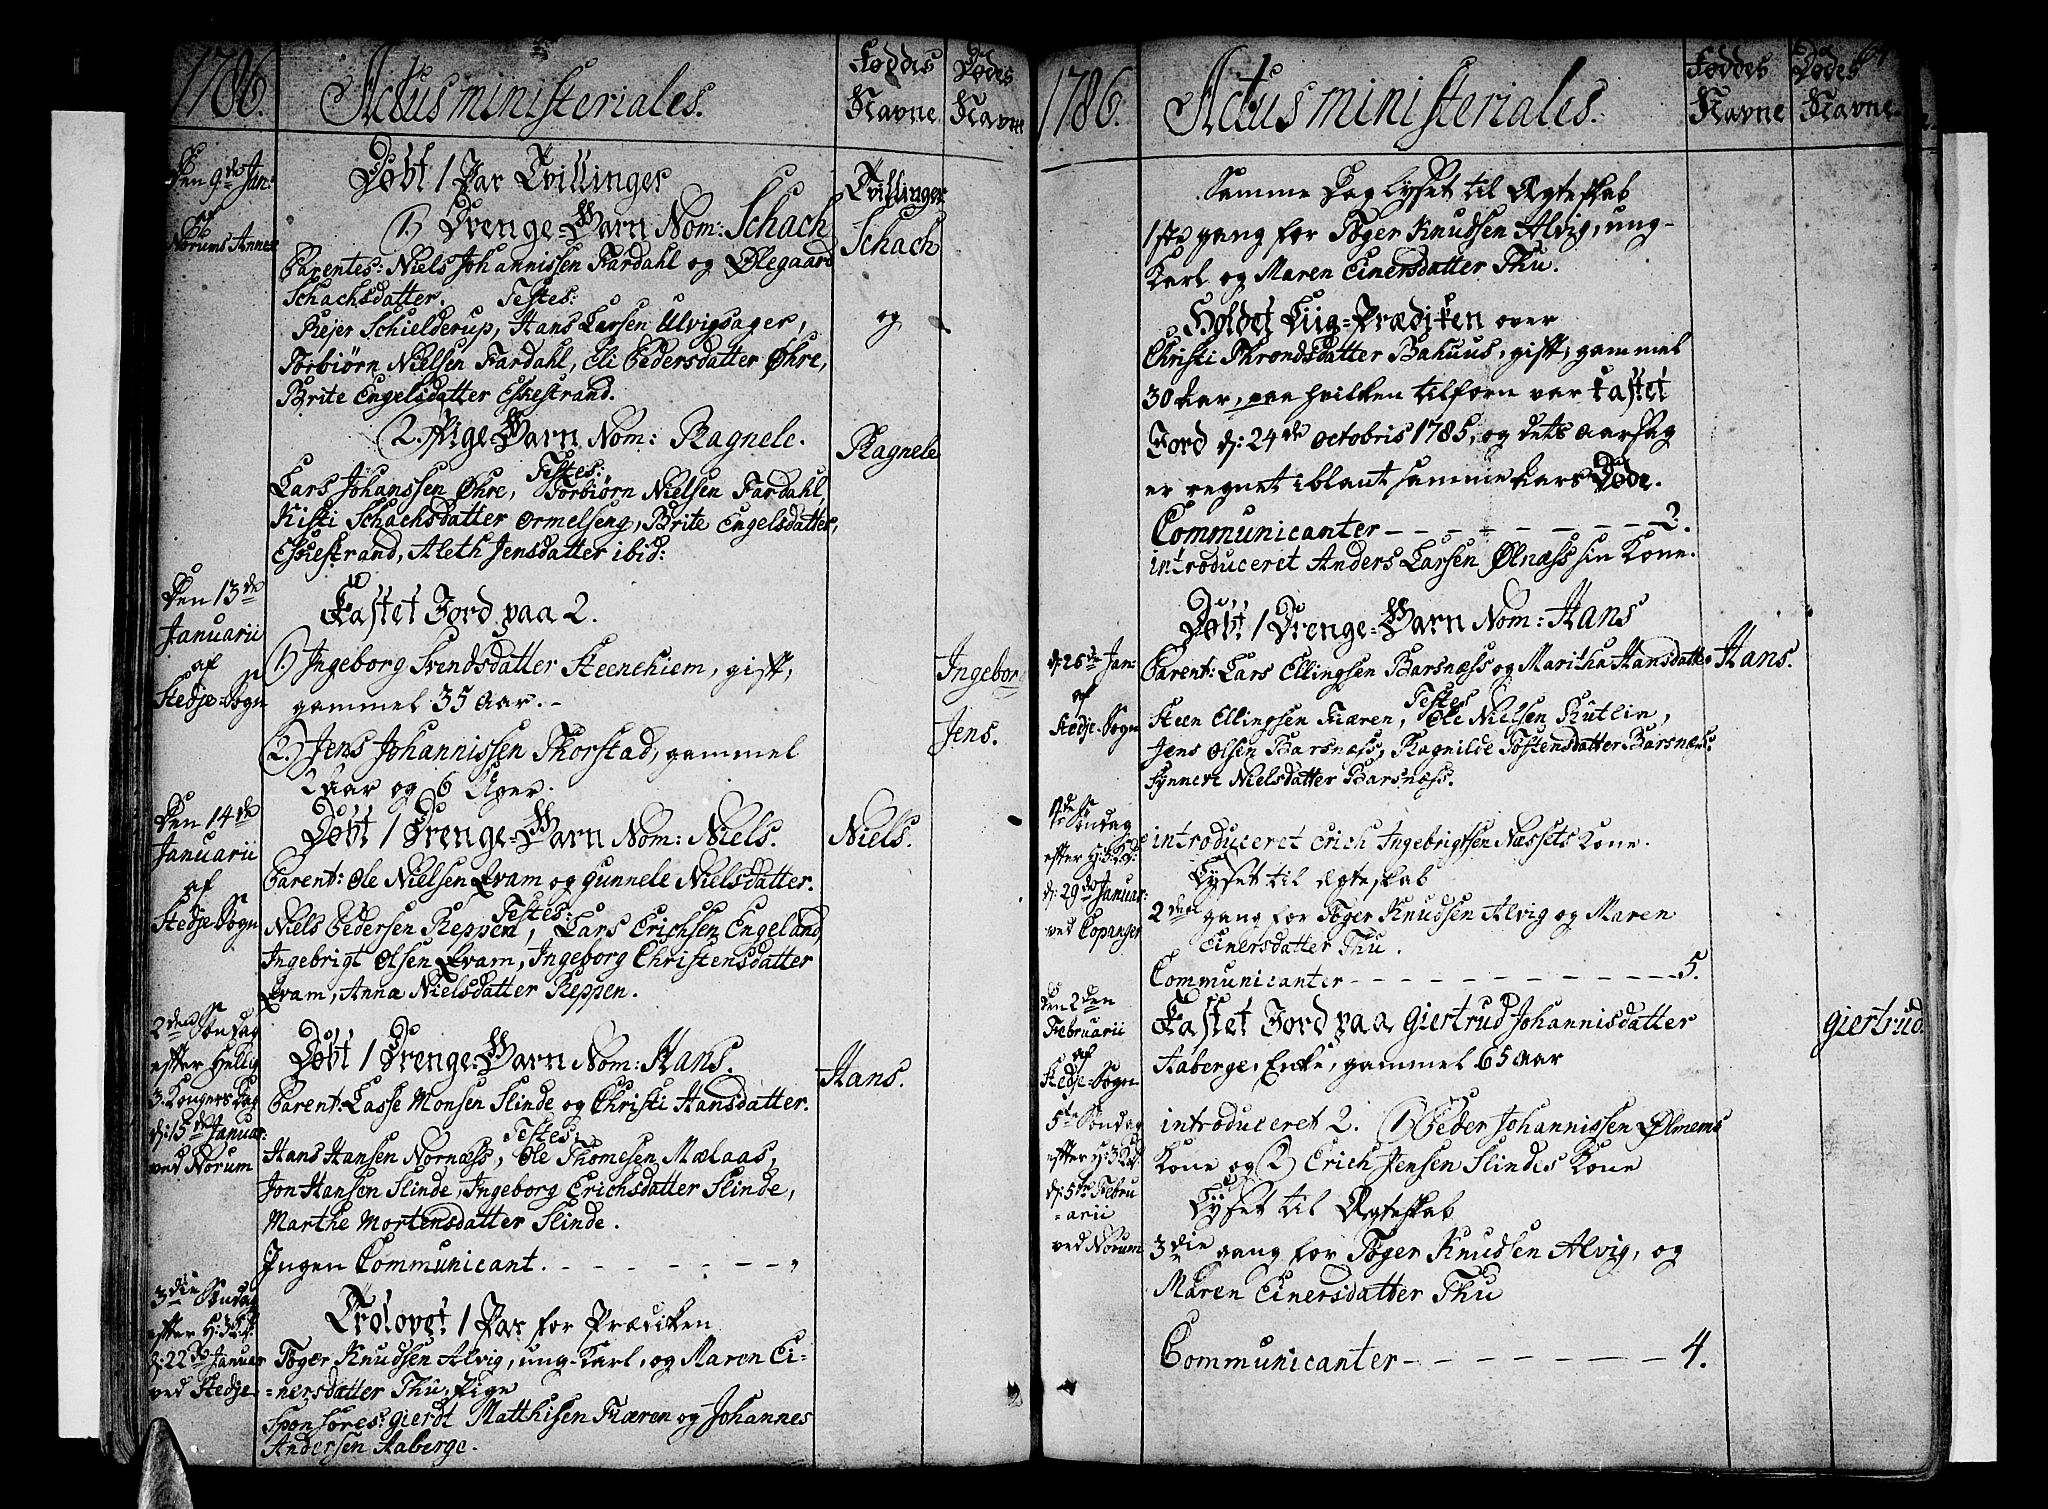 1786.
Actus ministeriales.
Føddes Navne
Dødes Navne
Den 9de Jan:
af
Norums Annex
Døbt 1 Par Tvillinger
Tvillinger
1.) Drenge-Barn Nom: Schach
Schach
Parentes: Niels Johannissen Fardahl og Ølegaard
Schachsdatter. Testes:
Rejer Schielderup, Hans Larsen Ulvigsager,
og
Torbiørn Nielsen Fardahl, Eli Pedersdatter Øhre,
Brite Engelsdatter Eskestrand.
(2. Pige-Barn Nom: Ragnele.
Ragnele
Testes:
Lars Johanssen Øhre, Torbiørn Nielsen Fardahl,
Kisti Schachsdatter Ormelseng, Brite Engelsdatter,
Eskestrand, Aleth Jensdatter ibid:
Den 13de
Januarii
af
Stedje-Sogn
Kastet Jord paa 2.
1.) Ingeborg Svendsdatter Steenehiem, gift,
Ingeborg
gammel 35 Aar. -
2.) Jens Johannissen Thorstad, gammel
Jens.
2 Aar og 6 Uger.
Den 14de
Januarii
af
Stedje-Sogn
Døbt 1 Drenge-Barn Nom: Niels.
Niels.
Parent: Ole Nielsen Qvam og Gunnele Nielsdatter.
Testes:
Niels Pedersen Reppen, Lars Erichsen Engeland,
Ingebrigt Olsen Qvam, Ingeborg Christensdatter
Qvam, Anna Nielsdatter Reppen.
2den Søndag
efter Hellig
3 Kongers Dag
d: 15de Januar:
ved Norum
Døbt 1 Drenge-Barn Nom: Hans.
Hans.
Parent: Lasse Monsen Slinde og Christi Hansdatter.
Testes:
Hans Hansen Nornæss, Ole Thomesen Mælaas,
Jon Hansen Slinde, Ingeborg Erichsdatter Slinde,
Marthe Mortensdatter Slinde.
Ingen Communicant. - - - - - - - "
3die Søndag
efter H: 3 K: D:
d: 22de Januar
ved Stedje
Trolovet 1 Par for Prædiken
Tøger Knudsen Alvig, ung-Karl, og Maren Ei-
-nersdatter Thu, Pige
Sponsores: Gierdt Matthisen Fiæren og Johannes
Andersen Aaberge.
1786.
Actus ministeriales.
Føddes Navne
Dødes Navne
Samme Dag lyset til Ægteskab
1ste gang for Tøger Knudsen Alvig, ung-
Karl og Maren Einersdatter Thu.
Holdet Liig-Prædiken over
Christi Throndsdatter Bahuus, gift, gammel
30 Aar, paa hvilken tilforn var kastet
Jord d: 24de Octobris 1785, og dets aarsag
er regnet iblant samme Aars Døde.
Communicanter - - - - - - - - 2.
introduceret Anders Larsen Ølnæss sin Kone.
Døbt 1 Drenge-Barn Nom: Hans
d: 26de Jan:
af
Stedje-Sogn
Parent: Lars Ellingsen Barsnæss og Maritha Hansdatter
Hans.
Testes
Steen Ellingsen Fiæren, Ole Nielsen Kutlin,
Jens Olsen Barsnæss, Ragnilde Tostensdatter Barsnæss:
Synneve Nielsdatter Barsnæss.
Søndag
efter H: 3 K: D:
d: 29de Januar:
ved Copanger
introduceret Erich Ingebrigtsen Næssets Kone.
Lyset til ægteskab
2den gang for Tøger Knudsen Alvig og Maren
Einersdatter Thu.
Communicanter - - - - - - - - - - 5.
Den 2den
Februarii
af
Stedje-Sogn
Kastet Jord paa Giertrud Johannisdatter
Giertrud
Aaberge, Enke, gammel 65 Aar
5te Søndag
efter H: 3 K: D:
d: 5te Febru
-arii
ved Norum
introduceret 2. 1.) Peder Johannissen Ølmems
Kone og 2.) Erich Jensen Slindes Kone
Lyset til Ægteskab
3die gang for Tøger Knudsen Alvig, og
Maren Einersdatter Thu
Communicanter - - - - - - - - 4.